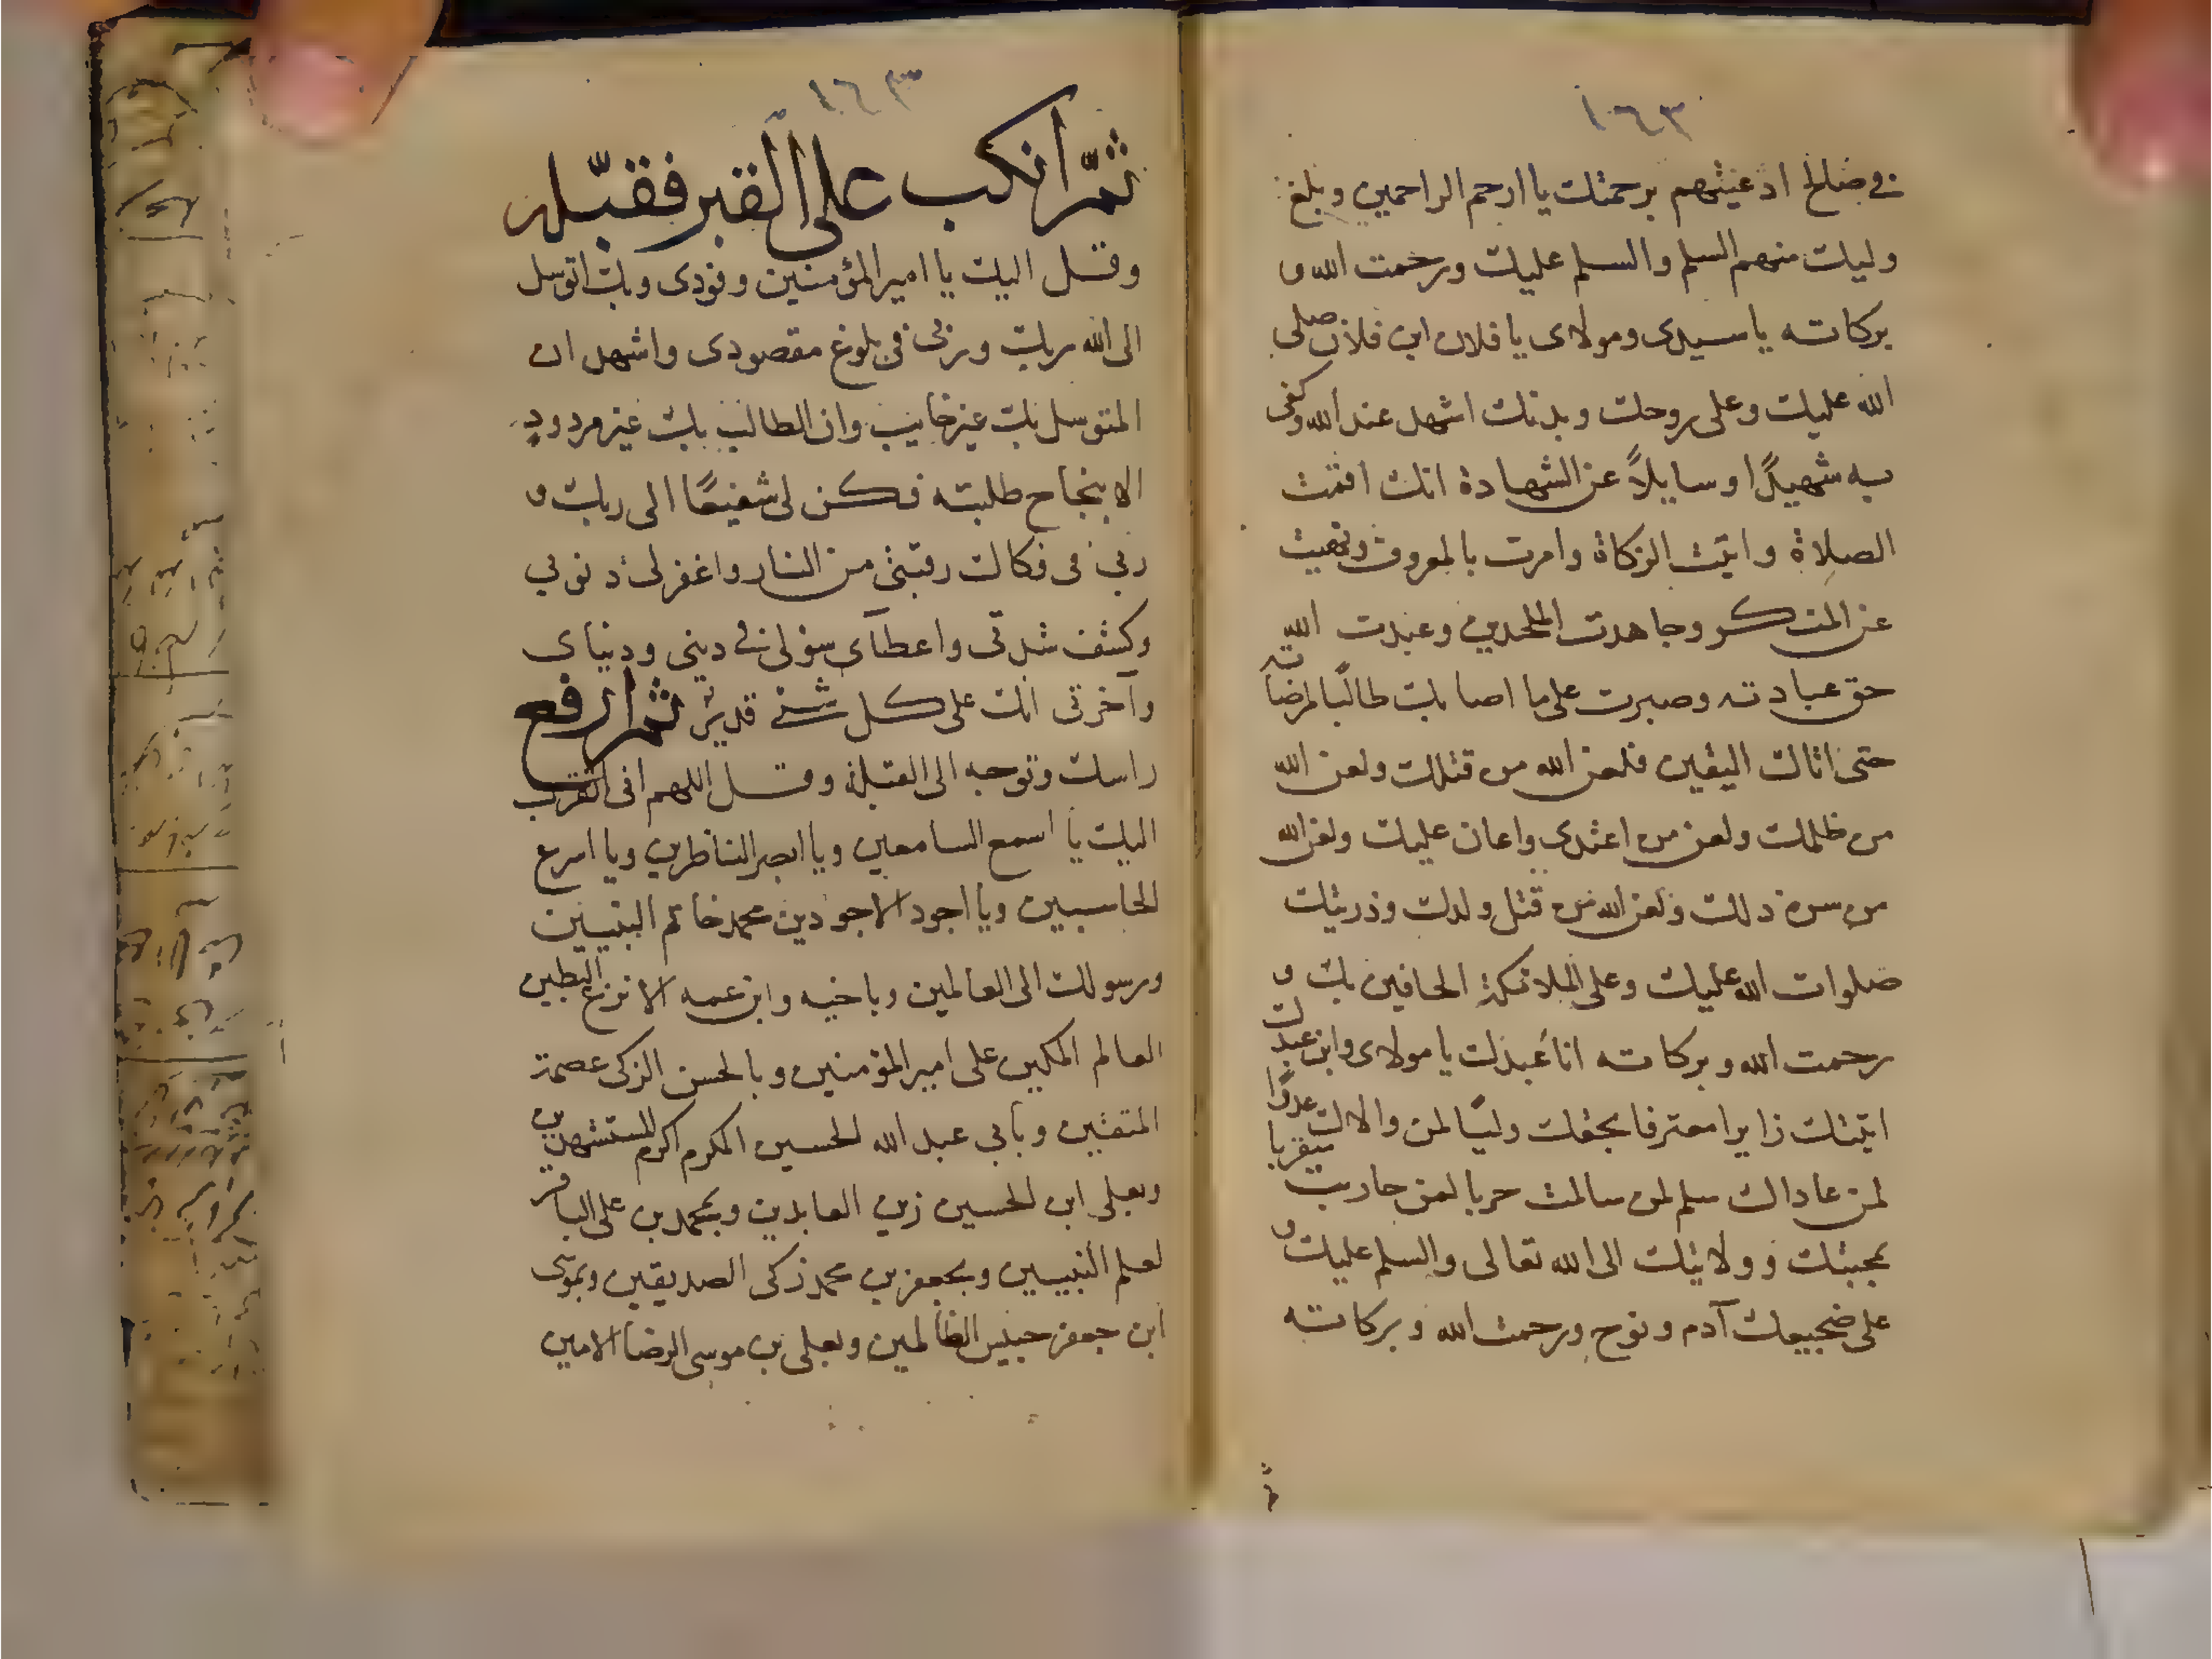 ١٦٣
في صالح ادعيتهم برحمتك يا ارحم الراحمين وبلغ
وليك منهم السلم والسلم عليك ورحمت الله و
بركاته يا سيدى ومولاى يا فلان ابن فلان صلى
الله عليك وعلى روحك وبدنك اشهد عند الله وكفى
به شهيدًا وسايلاً عن الشهادة انك اقمت
الصلاة واتيت الزكاة وامرت بالمعروف ونهيت
عن المنكر وجاهدت الملحدين وعبدت الله
حق عبادته وصبرت على ما اصابك طالبًا لمرضاته
حتى اتاك اليقين فلعن الله من قتلك ولعن الله
من ظلمك ولعن من اعتدى واعان عليك ولعن الله
من سره ذلك ولعن الله من قتل ولدك وذريتك
صلوات الله عليك وعلى الملائكة الحافين بك و
رحمت الله وبركاته انا عبدك يا مولاى وابن عبدك
اتيتك زايرا معترفا بحقك وليًا لمن والاك عدوًا
لمن عاداك سلم لمن سالمت حربا لمن حاربت متقربا
بمحبتك وولايتك الى الله تعالى والسلم عليك و
على ضجيعك آدم ونوح ورحمت الله وبركاته
ثم
١٦٣
ثمّ انكب على القبر فقبّله
وقل اليك يا امير المؤمنين وفودى وبك اتوسل
الى الله ربك وربى فى بلوغ مقصودى واشهد ان
المتوسل بك غير خايب وان الطالب بك غير مردودٍ
الا بنجاح طلبته فكن لى شفيعًا الى ربك و
ربى فى فكاك رقبتى من النار واغفر لى ذنوبى
وكشف شدتى واعطآى سؤلى فى دينى ودنياى
وآخرتى انك على كل شئ قدير ثم ارفع
راسك وتوجه الى القبلة وقل اللهم انى اتقرب
اليك يا اسمع السامعين ويا ابصر الناظرين ويا اسرع
الحاسبين ويا اجود الاجودين محمد خاتم النبيين
ورسولك الى العالمين وباخيه وابن عمه الانزع البطين
العالم المكين على امير المؤمنين وبالحسن الزكى عصمة
المتقين وبابى عبد الله الحسين المكرم اكرم المستشهدين
وبعلى ابن الحسين زين العابدين وبمحمد بن على الباقر
لعلم النبيين وبجعفر بن محمد زكى الصديقين وبموسى
ابن جعفر حبيس الظالمين وبعلى بن موسى الرضا الامين